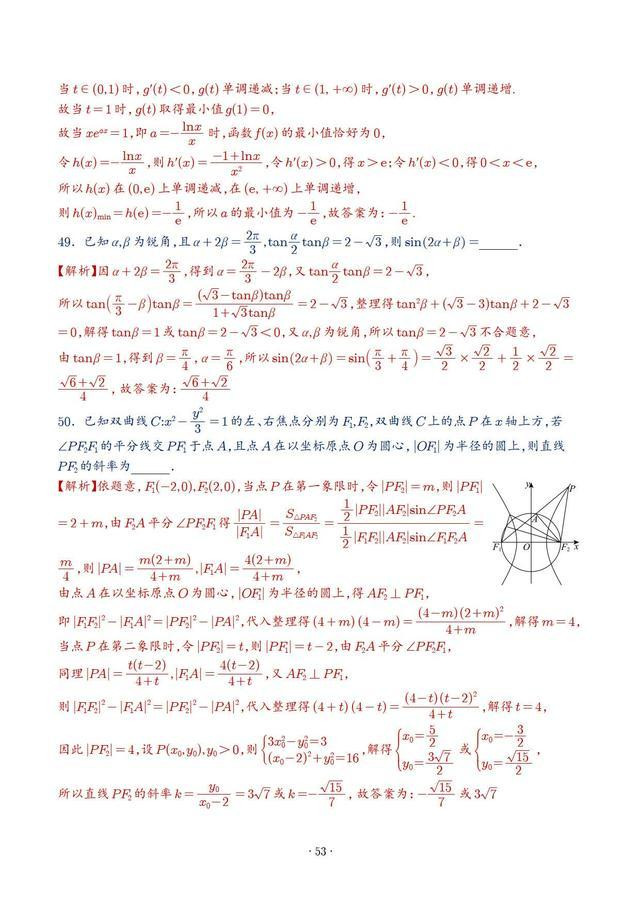 当 t∈(0,1) 时, g′(t)<0, g(t) 单调递减; 当 t∈(1,+∞) 时, g′(t)>0, g(t) 单调递增.
故当 t=1 时, g(t) 取得最小值 g(1)=0,
故当 xe^{ax}=1, 即 a=-\frac{lnx}{x} 时, 函数 f(x) 的最小值恰好为 0,
令 h(x)=-\frac{lnx}{x}, 则 h′(x)=\frac{-1+lnx}{x²}, 令 h′(x)>0, 得 x>e; 令 h′(x)<0, 得 0<x<e,
所以 h(x) 在 (0,e) 上单调递减, 在 (e,+∞) 上单调递增,
则 h(x)_{min}=h(e)=-\frac{1}{e}, 所以 a 的最小值为 -\frac{1}{e}, 故答案为: -\frac{1}{e}.
49. 已知 α,β 为锐角, 且 α+2β=\frac{2π}{3}, tan\frac{α}{2}tanβ=2-√3, 则 sin(2α+β)=______.
【解析】因 α+2β=\frac{2π}{3}, 得到 α=\frac{2π}{3}-2β, 又 tan\frac{α}{2}tanβ=2-√3,
所以 tan(\frac{π}{3}-β)tanβ=\frac{(√3-tanβ)tanβ}{1+√3tanβ}=2-√3, 整理得 tan²β+(√3-3)tanβ+2-√3
=0, 解得 tanβ=1 或 tanβ=2-√3<0, 又 α,β 为锐角, 所以 tanβ=2-√3 不合题意,
由 tanβ=1, 得到 β=\frac{π}{4}, α=\frac{π}{6}, 所以 sin(2α+β)=sin(\frac{π}{3}+\frac{π}{4})=\frac{√3}{2}×\frac{√2}{2}+\frac{1}{2}×\frac{√2}{2}=
\frac{√6+√2}{4}, 故答案为: \frac{√6+√2}{4}
50. 已知双曲线 C:x²-\frac{y²}{3}=1 的左、右焦点分别为 F₁,F₂, 双曲线 C 上的点 P 在 x 轴上方, 若
∠PF₂F₁ 的平分线交 PF₁ 于点 A, 且点 A 在以坐标原点 O 为圆心, |OF₁| 为半径的圆上, 则直线
PF₂ 的斜率为______.
【解析】依题意, F₁(-2,0),F₂(2,0), 当点 P 在第一象限时, 令 |PF₂|=m, 则 |PF₁|
=2+m, 由 F₂A 平分 ∠PF₂F₁ 得 \frac{|PA|}{|F₁A|}=\frac{S_{△PAF₂}}{S_{△F₁AF₂}}=\frac{\frac{1}{2}|PF₂||AF₂|sin∠PF₂A}{\frac{1}{2}|F₁F₂||AF₂|sin∠F₁F₂A}=
y
P
A
F₁
O
F₂
x
\frac{m}{4}, 则 |PA|=\frac{m(2+m)}{4+m}, |F₁A|=\frac{4(2+m)}{4+m},
由点 A 在以坐标原点 O 为圆心, |OF₁| 为半径的圆上, 得 AF₂⊥PF₁,
即 |F₁F₂|²-|F₁A|²=|PF₂|²-|PA|², 代入整理得 (4+m)(4-m)=\frac{(4-m)(2+m)²}{4+m}, 解得 m=4,
当点 P 在第二象限时, 令 |PF₂|=t, 则 |PF₁|=t-2, 由 F₂A 平分 ∠PF₂F₁,
同理 |PA|=\frac{t(t-2)}{4+t}, |F₁A|=\frac{4(t-2)}{4+t}, 又 AF₂⊥PF₁,
则 |F₁F₂|²-|F₁A|²=|PF₂|²-|PA|², 代入整理得 (4+t)(4-t)=\frac{(4-t)(t-2)²}{4+t}, 解得 t=4,
因此 |PF₂|=4, 设 P(x₀,y₀),y₀>0, 则 {3x₀²-y₀²=3 (x₀-2)²+y₀²=16, 解得 {x₀=\frac{5}{2} y₀=\frac{3√7}{2} 或 {x₀=-\frac{3}{2} y₀=\frac{√15}{2},
所以直线 PF₂ 的斜率 k=\frac{y₀}{x₀-2}=3√7 或 k=-\frac{√15}{7}, 故答案为: -\frac{√15}{7} 或 3√7
· 53 ·